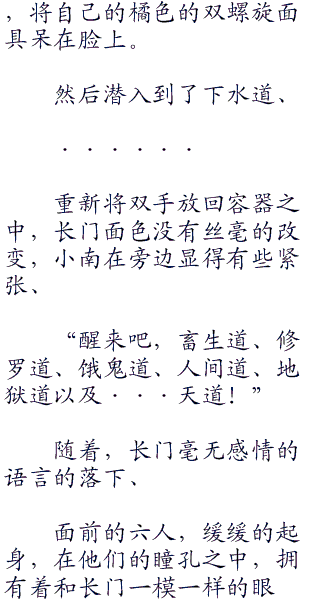 ，将自己的橘色的双螺旋面
具呆在脸上。
然后潜入到了下水道、
······
重新将双手放回容器之
中，长门面色没有丝毫的改
变，小南在旁边显得有些紧
张、
“醒来吧，畜生道、修
罗道、饿鬼道、人间道、地
狱道以及···天道！”
随着，长门毫无感情的
语言的落下、
面前的六人，缓缓的起
身，在他们的瞳孔之中，拥
有着和长门一模一样的眼